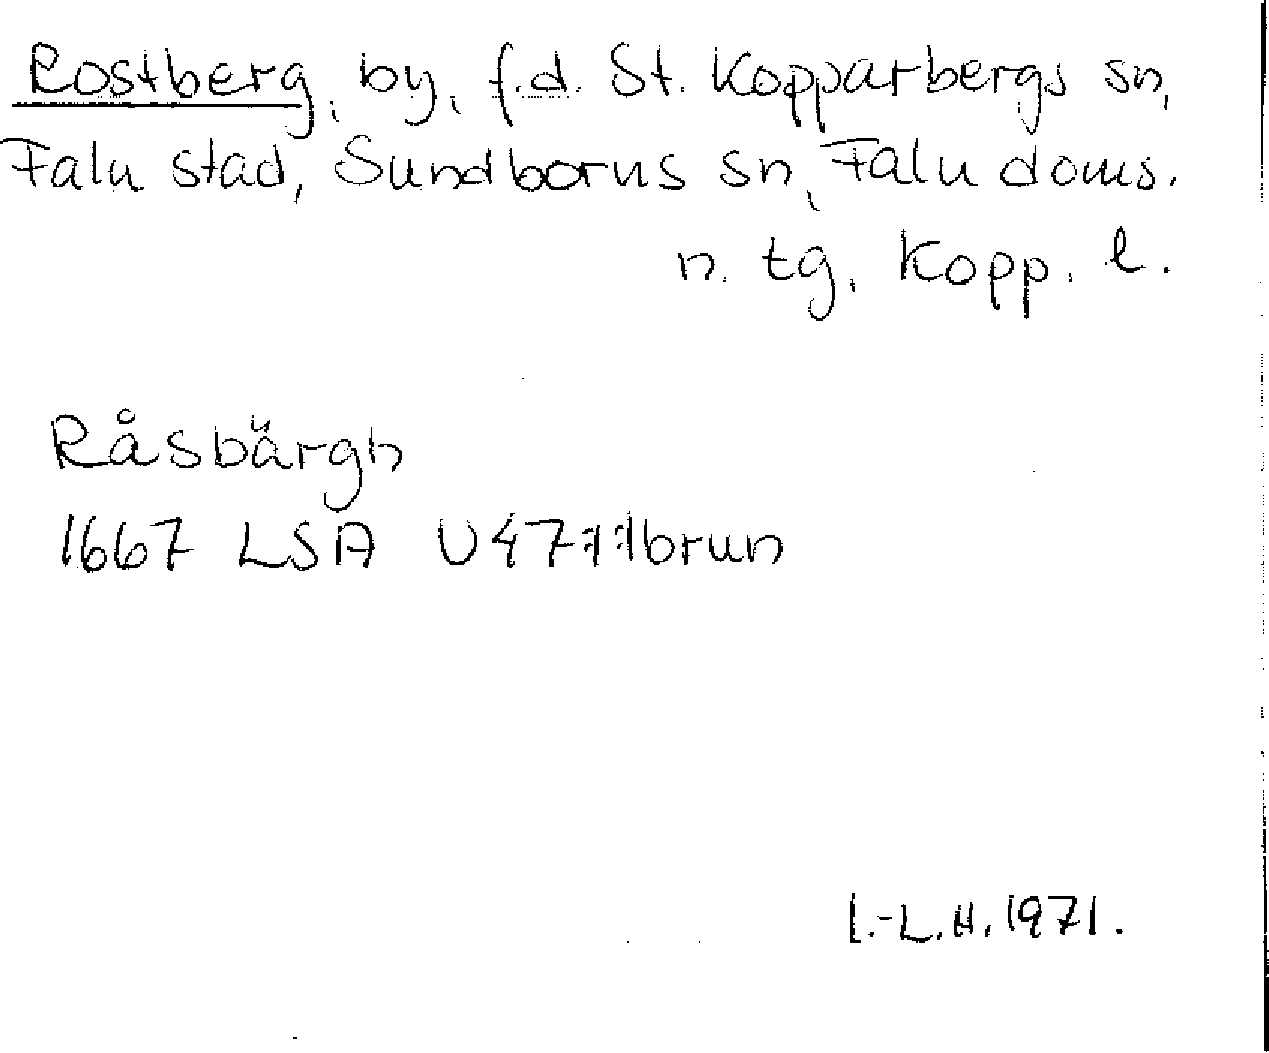 Rostberg, by, f.d. St. Kopparbergs sn,
Falu stad, Sundborns sn, Falu doms.
n. tg. Kopp. l.
Råsbärgh
1667 LSA U47 1:1 brun
I.-L.H. 1971.